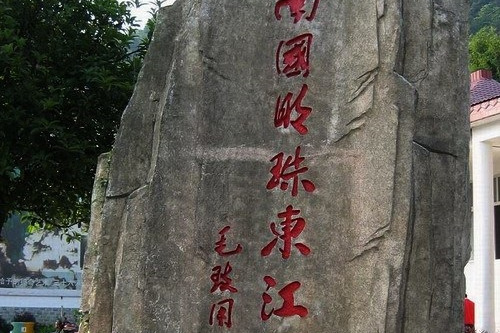 南國明珠東江
毛致用